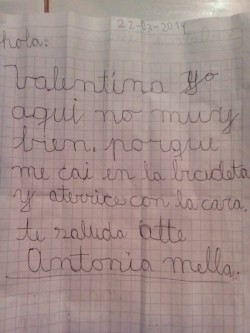 22-03-2014
hola:
Valentina yo
aqui no muy
bien. porque
me cai en la bicicleta
y aterrice con la cara.
te saluda atte
Antonia mella.